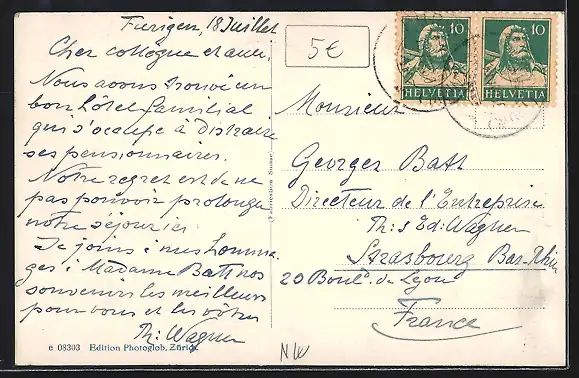 Furigen, 18 Juillet
Cher collègue et ami,
Nous avons trouvé un
bon hôtel familial
qui s'occupe à distraire
ses pensionnaires.
Notre regret est de ne
pas pouvoir prolonger
notre séjour ici.
Je joins à mes homma-
ges à Madame Batt nos
souvenirs les meilleurs
pour vous et les vôtres
Th: Wagner
e 08303 Edition Photoglob, Zürich.
(Fabrication Suisse)
5€
10 10
HELVETIA HELVETIA
Monsieur
Georges Batt
Directeur de l'Entreprise
Th: & Ed: Wagner
Strasbourg Bas-Rhin
29 Boul^d. de Lyon
France
NW